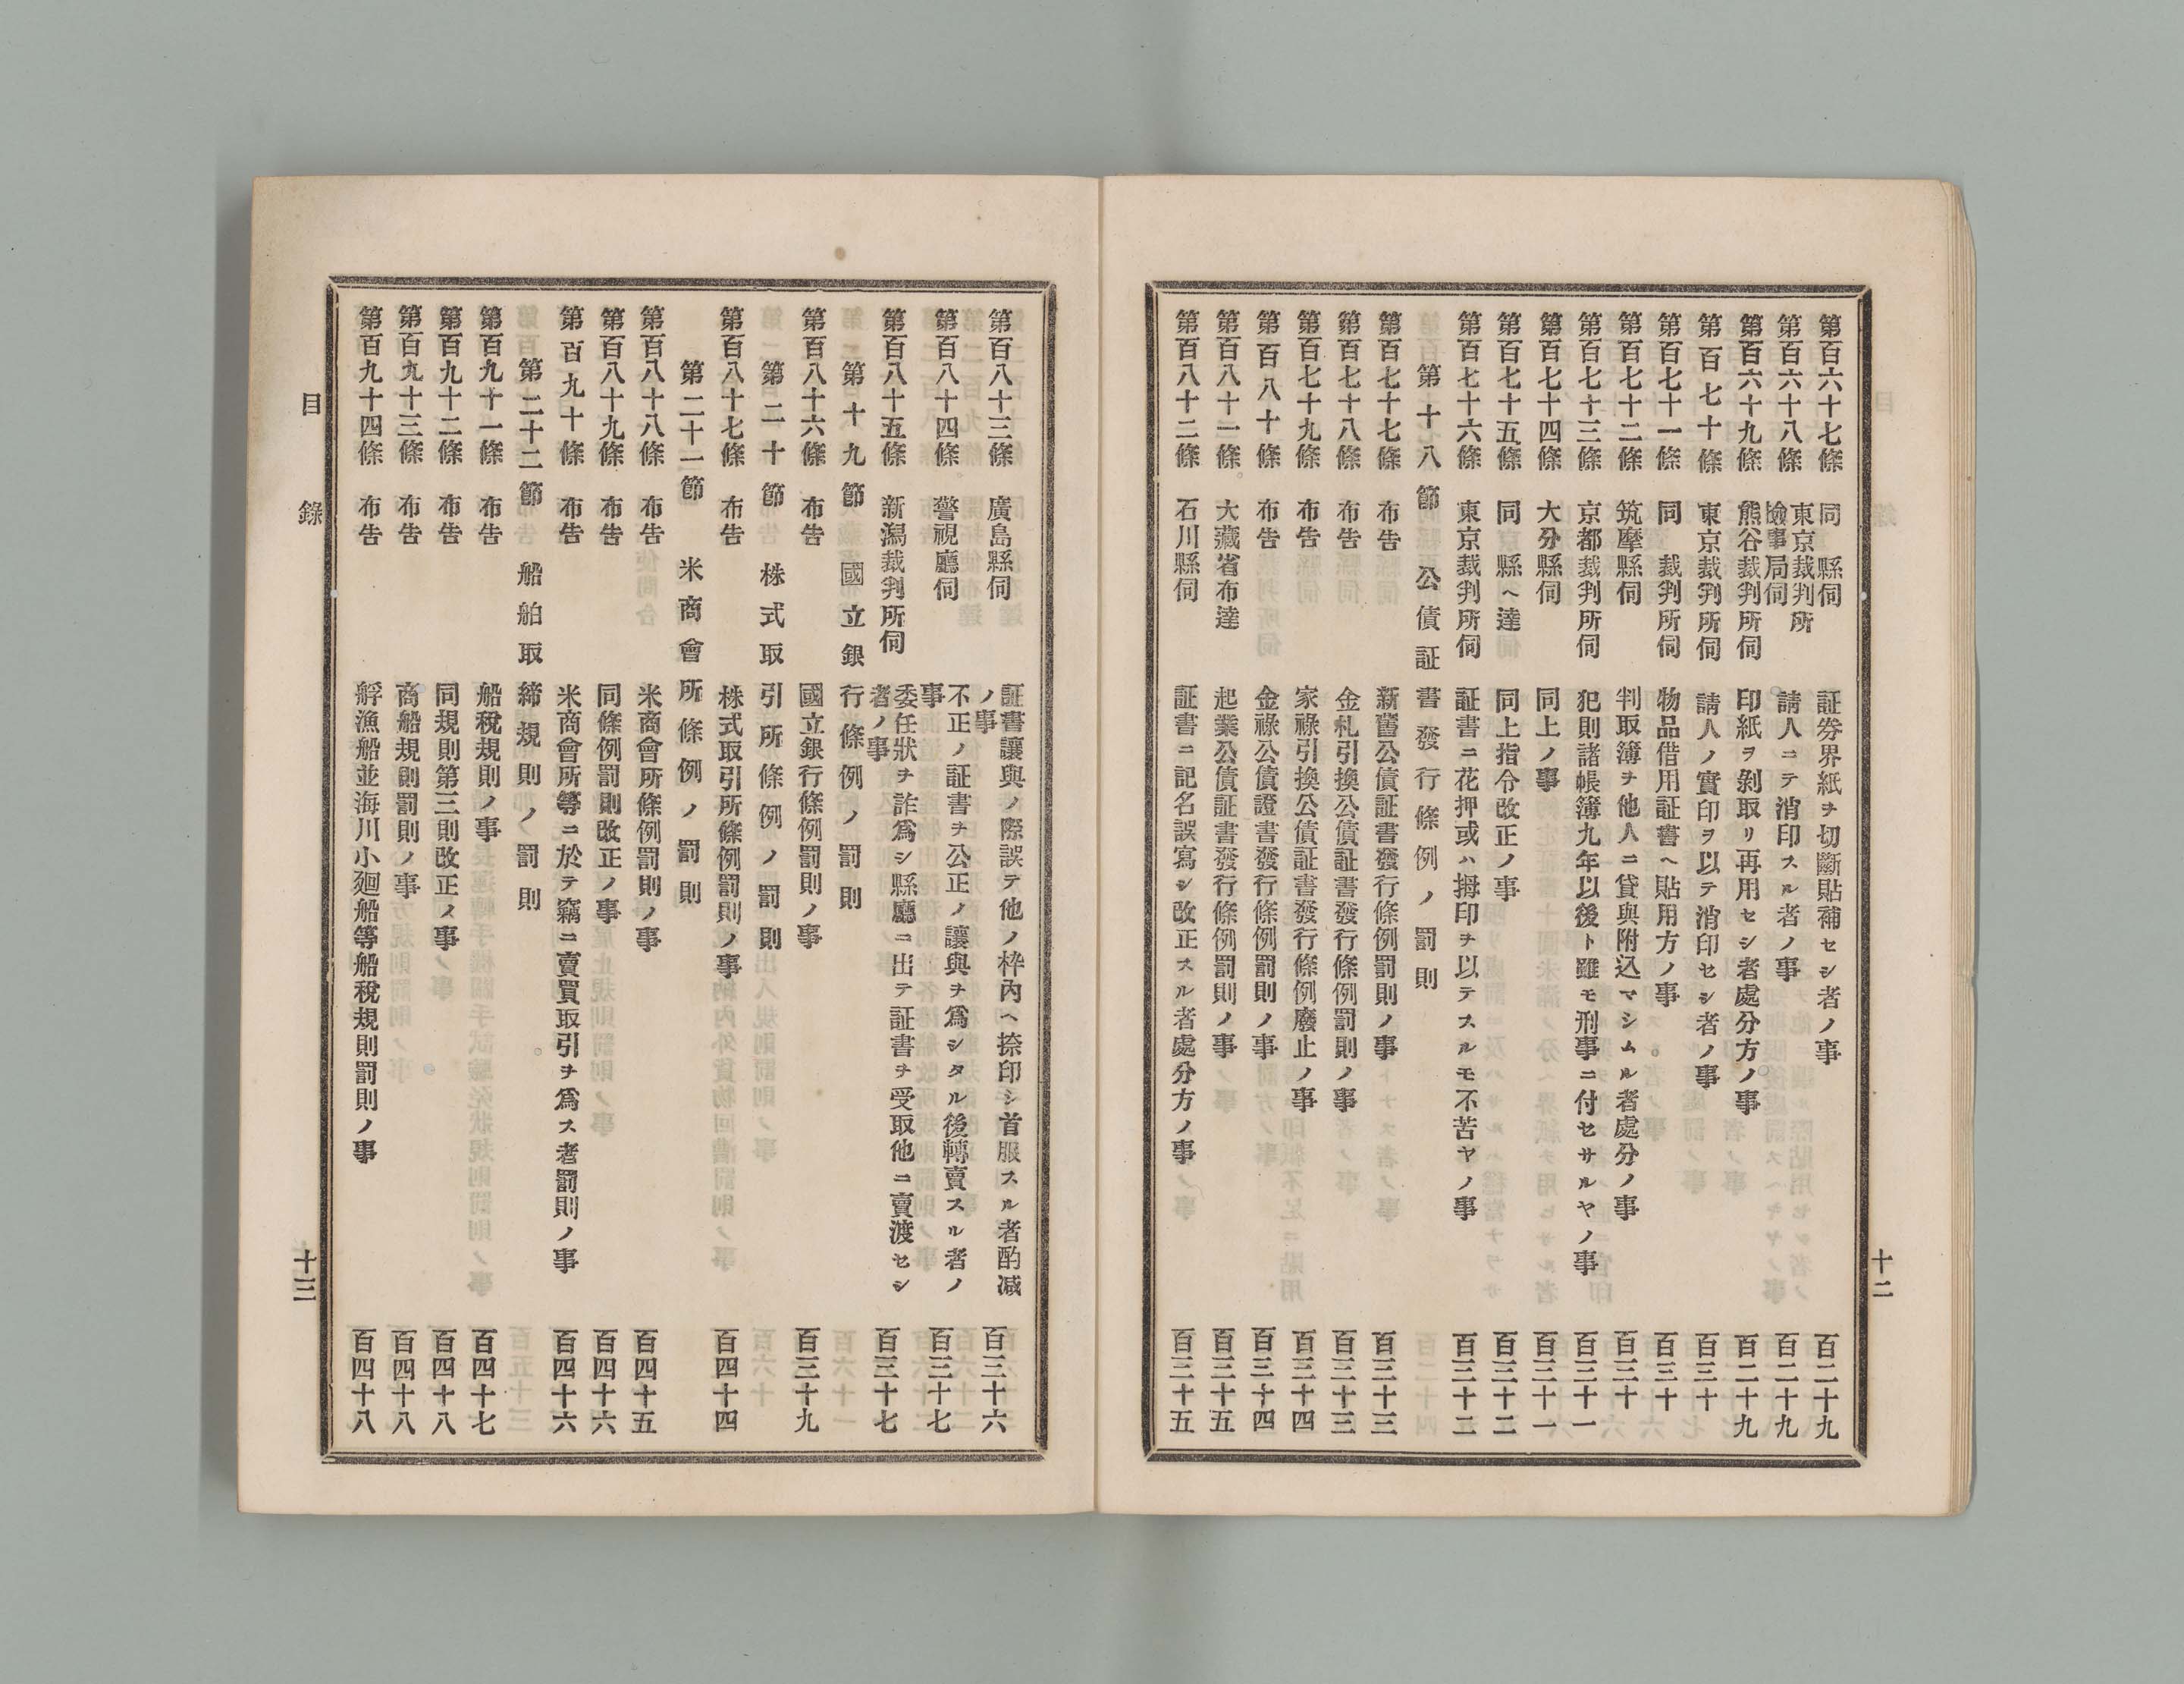 十二
第百六十七條 同縣伺 証券界紙ヲ切斷貼補セシ者ノ事 百二十九
第百六十八條 東京裁判所檢事局伺 請人ニテ消印スル者ノ事 百二十九
第百六十九條 熊谷裁判所伺 印紙ヲ剝取リ再用セシ者處分方ノ事 百二十九
第百七十條 東京裁判所伺 請人ノ實印ヲ以テ消印セシ者ノ事 百三十
第百七十一條 同裁判所伺 物品借用証書ヘ貼用方ノ事 百三十
第百七十二條 筑摩縣伺 判取簿ヲ他人ニ貸與附込マシムル者處分ノ事 百三十
第百七十三條 京都裁判所伺 犯則諸帳簿九年以後ト雖モ刑事ニ付セサルヤノ事 百三十一
第百七十四條 大分縣伺 同上ノ事 百三十一
第百七十五條 同縣ヘ達 同上指令改正ノ事 百三十二
第百七十六條 東京裁判所伺 証書ニ花押或ハ拇印ヲ以テスルモ不苦ヤノ事 百三十二
第十八節 公債証書發行條例ノ罰則
第百七十七條 布告 新舊公債証書發行條例罰則ノ事 百三十三
第百七十八條 布告 金札引換公債証書發行條例罰則ノ事 百三十三
第百七十九條 布告 家祿引換公債証書發行條例廢止ノ事 百三十四
第百八十條 布告 金祿公債證書發行條例罰則ノ事 百三十四
第百八十一條 大藏省布達 起業公債証書發行條例罰則ノ事 百三十五
第百八十二條 石川縣伺 証書ニ記名誤寫シ改正スル者處分方ノ事 百三十五
第百八十三條 廣島縣伺 証書讓與ノ際誤テ他ノ枠內ヘ捺印シ首服スル者酌減ノ事 百三十六
第百八十四條 警視廳伺 不正ノ証書ヲ公正ノ讓與ヲ爲シタル後轉賣スル者ノ事 百三十七
第百八十五條 新潟裁判所伺 委任狀ヲ詐爲シ縣廳ニ出テ証書ヲ受取他ニ賣渡セシ者ノ事 百三十七
第十九節 國立銀行條例ノ罰則
第百八十六條 布告 國立銀行條例罰則ノ事 百三十九
第二十節 株式取引所條例ノ罰則
第百八十七條 布告 株式取引所條例罰則ノ事 百四十四
第二十一節 米商會所條例ノ罰則
第百八十八條 布告 米商會所條例罰則ノ事 百四十五
第百八十九條 布告 同條例罰則改正ノ事 百四十六
第百九十條 布告 米商會所等ニ於テ竊ニ賣買取引ヲ爲ス者罰則ノ事 百四十六
第二十二節 船舶取締規則ノ罰則
第百九十一條 布告 船稅規則ノ事 百四十七
第百九十二條 布告 同規則第三則改正ノ事 百四十八
第百九十三條 布告 商船規則罰則ノ事 百四十八
第百九十四條 布告 艀漁船並海川小廻船等船稅規則罰則ノ事 百四十八
目錄 十三